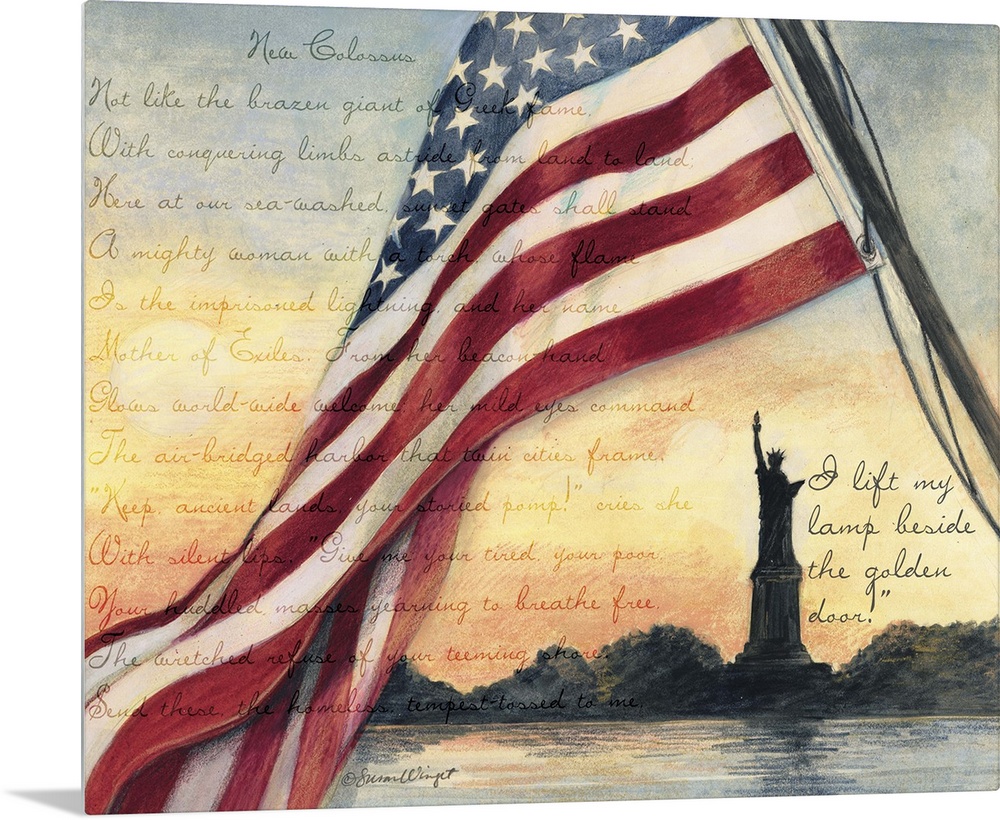 New Colossus
Not like the brazen giant of Greek fame,
With conquering limbs astride from land to land;
Here at our sea-washed, sunset gates shall stand
A mighty woman with a torch, whose flame
Is the imprisoned lightning, and her name
Mother of Exiles. From her beacon-hand
Glows world-wide welcome; her mild eyes command
The air-bridged harbor that twin cities frame.
"Keep, ancient lands, your storied pomp!" cries she
With silent lips. "Give me your tired, your poor,
Your huddled masses yearning to breathe free,
The wretched refuse of your teeming shore.
Send these, the homeless, tempest-tossed to me,
I lift my
lamp beside
the golden
door!"
©Susan Winget